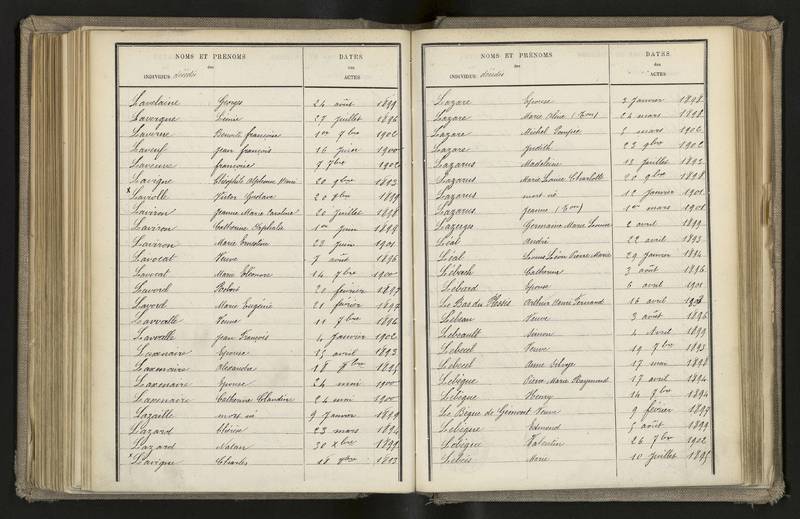 NOMS ET PRÉNOMS DATES
des des
INDIVIDUS décédés ACTES
Lavelaine Georges 24 août 1899
Lavergne Lucie 27 juillet 1896
Laverne Benoite françoise 1er 7bre 1902
Laveuf Jean françois 16 juin 1900
Laveuve francoise 7 7bre 1902
Lavigne Théophile Alphonse Henri 20 9bre 1893
x Laviolle Victor Gustave 20 9bre 1899
Laviron Jeanne Marie Caroline 20 juillet 1898
Laviron Catherine 1er juin 1899
Laviron Marie Ernestine 23 juin 1901
Lavocat Veuve 7 août 1896
Lavocat Marie Eléonore 14 7bre 1900
Lavord 20 février 1897
Lavord Marie Eugénie 21 février 1897
Lavvalle Veuve 11 7bre 1896
Lavvalle Jean François 4 Janvier 1902
Laxenaire Epouse 15 avril 1893
Laxenaire Alexandre 18 1895
Laxenaire Epouse 24 mai 1900
Laxenaire Catherine Claudine 24 mai 1900
Lazaille mort né 9 Janvier 1899
Lazard 23 mars 1894
Lazard Natan 30 xbre 1899
x Lavigne Charles 18 9bre 1893
NOMS ET PRÉNOMS DATES
des des
INDIVIDUS décédés ACTES
Lazare Epouse 3 Janvier 1898
Lazare Marie 24 mars 1898
Lazare Michel mars 1906
Lazare Judith 23 9bre 1902
Lazarus Madeleine 12 Juillet 1893
Lazarus Marie Louise Charlotte 20 9bre 1898
Lazarus mort né 12 Janvier 1901
Lazarus Jeanne 1er mars 1901
Lazerges Germaine Marie Louise 2 avril 1899
Léal André 22 avril 1893
Léal Louis Léon Pierre Marie 29 Janvier 1894
Lebach Catherine 3 août 1896
Lebard Epouse 6 avril 1901
Le Bas du Plessis Arthur Henri Fernand 16 avril
Lebeau Veuve 3 août 1896
Lebeault Simon 4 Avril 1899
Lebecel Veuve 19 7bre 1893
Lebecel Anne 17 mai 1898
Lebègue Pierre Marie Raymond 17 avril 1894
Lebègue Henry 14 7bre 1894
Le Bègue de Germont Veuve 9 février 1897
Lebègue Edmond août 1899
Lebègue Valentin 26 7bre 1902
Lebeis Marie 10 Juillet 1895